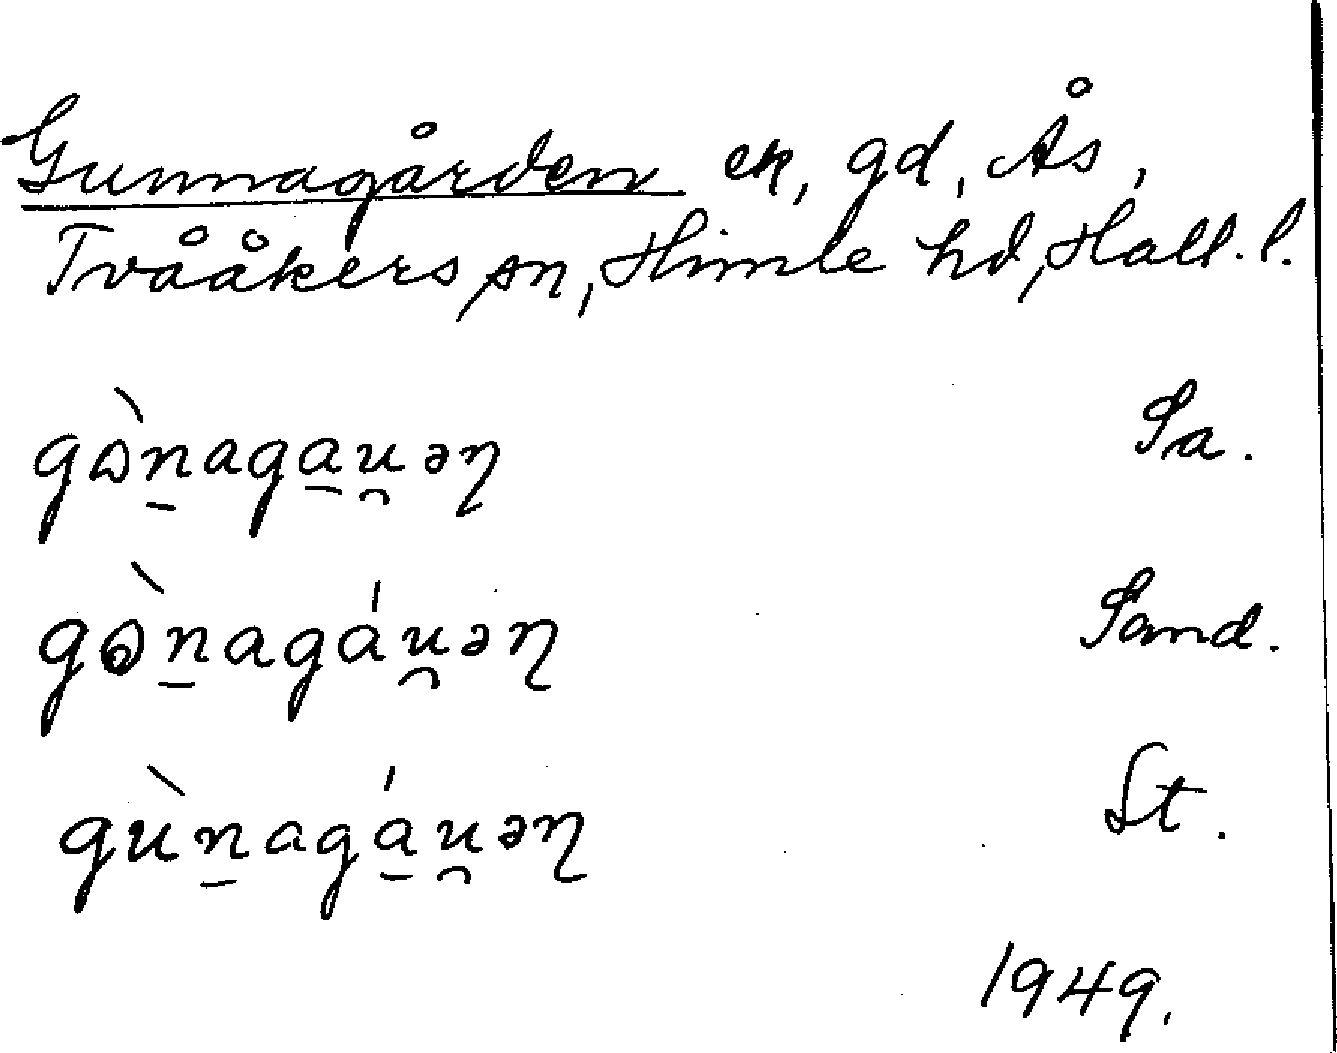 Gunnagården ek, gd, Ås,
Tvååkers sn, Himle hd, Hall. l.
gɷ̀n̠aga̠u̯əɳ Sa.
gɷ̀n̠agáu̯əɳ Sand.
gùn̠agá̠u̯əɳ St.
1949.